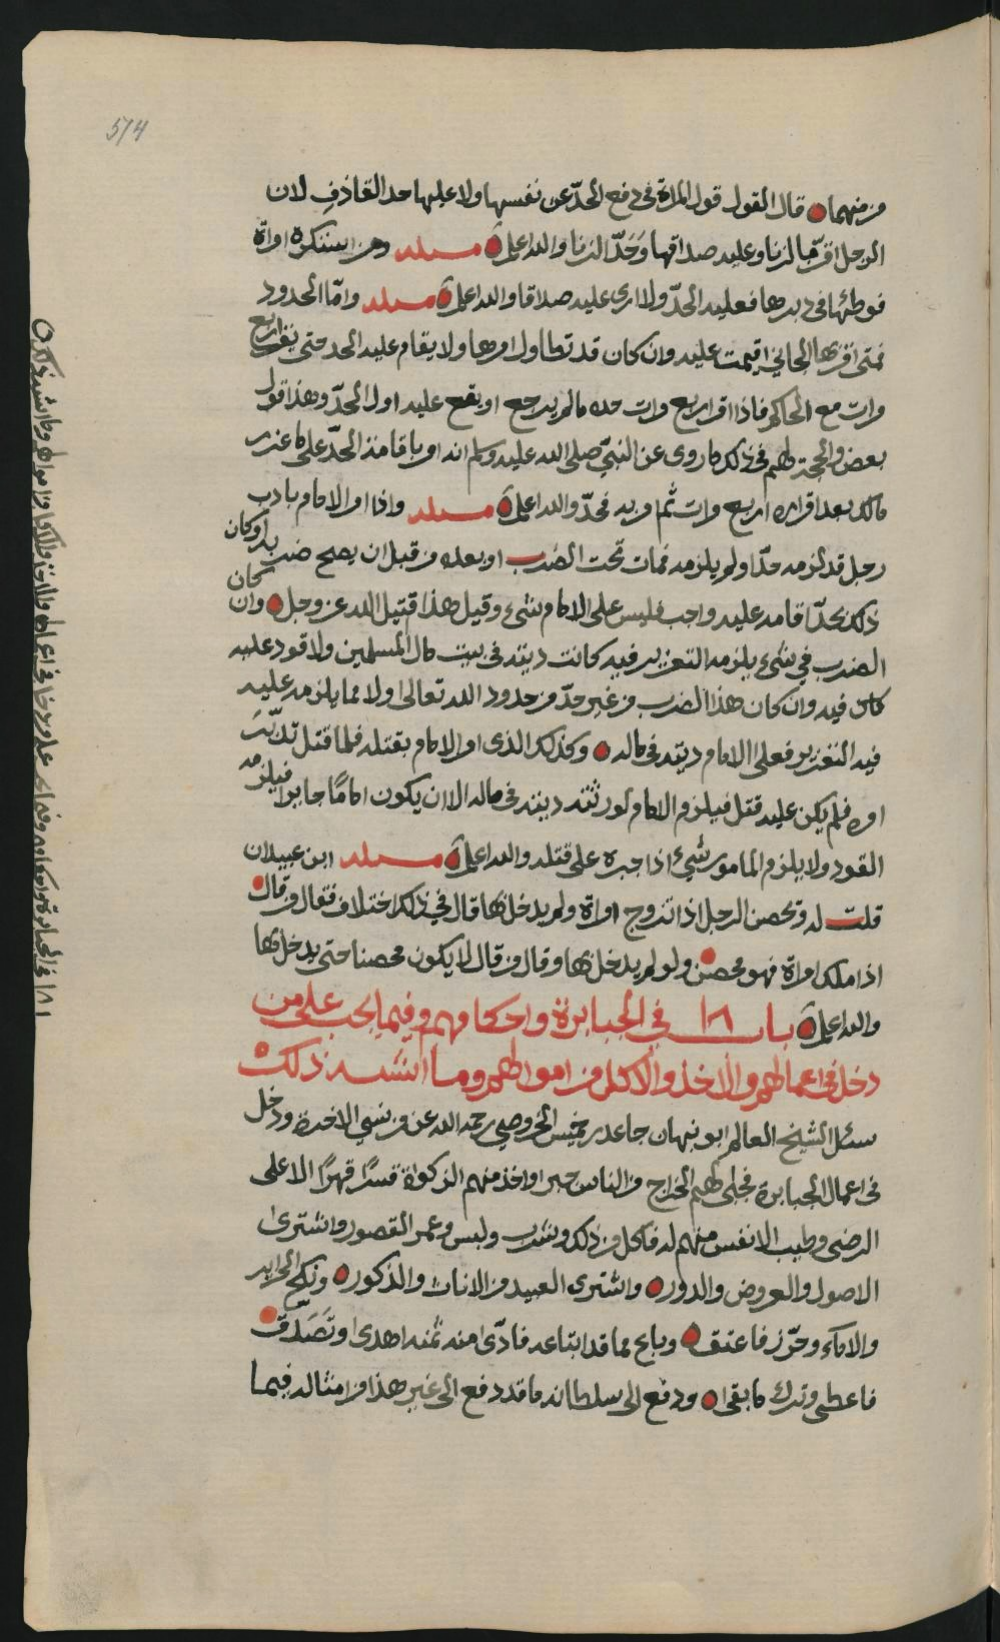 574
من منهما قال القول قول المراة في دفع الحدّ عن نفسها ولا عليها حد القاذف لان
الرجل اقرّ بالزنا وعليه صداقها وَحَدّ الزنا والله اعلم مسئلة ومن استنكره امراة
فوطئها في دبرها فعليه الحدّ ولا ارى عليه صداقا والله اعلم مسئلة وامّا الحدود
فمتى اقر بها الجاني اقيمت عليه وان كان قد تطاول امرها ولا يقام عليه الحد حتى يقر اربع
مرات مع الحاكم فاذا اقر اربع مرات حده مالم يرجع او يقع عليه اول الحدّ وهذا قول
بعض والحجة لهم في ذلك ما روى عن النبيّ صلى الله عليه وسلم انه امر باقامة الحدّ على ماعز بن
مالك بعد اقراره اربع مرات ثم امر به فحدّ والله اعلم مسئلة واذا امر الامام بادب
رجل قد لزمه حدّ او لم يلزمه فمات تحت الضرب او بعده من قبل ان يصح ضربه او كان
ذلك بحدّ اقامه عليه واجب فليس على الامام شيء وقيل هذا قتيل الله عز وجل وان كان
الضرب في شيء يلزمه التعزير فيه كانت ديته في بيت مال المسلمين ولا قود عليه
كان فيه وان كان هذا الضرب من غير حدّ من حدود الله تعالى اولا مما يلزمه عليه
فيه التعزير فعلى الامام ديته في ماله وكذلك الذي امر الامام بقتله فلما قتل تبيّن
امره فلم يكن عليه قتل فيلزم الامام لورثته ديته في ماله الا ان يكون اماما جابرا فيلزمه
القود ولا يلزم المامور شيء اذا جبره على قتله والله اعلم مسئلة ابن عبيدان
قلت له وتحصن الرجل اذا تزوج امراة ولم يدخل بها قال في ذلك اختلاف فقال من قال
اذا ملك امراة فهو محصن ولو لم يدخل بها وقال من قال لا يكون محصنا حتى يدخل بها
والله اعلم باب ١٨١ في الجبابرة واحكامهم وفيما يجب على من
دخل في اعمالهم والاخذ والاكل من اموالهم وما اشبه ذلك
سئل الشيخ العالم ابو نبهان جاعد بن خميس الخروصي رحمه الله عن من نسي الاخرة ودخل
في اعمال الجبابرة فجلى لهم الخراج من الناس جبرا واخذ منهم الزكواة قسرًا قهرًا لا على
الرضى وطيب الانفس منهم له فاكل من ذلك وشرب ولبس وعمر القصور واشترى
الاصول والعروض والدور واشترى العبيد من الاناث والذكور ونكح الحراير
والاماء وحرّر فاعتق وباع مما قد ابتاعه فادّى منه ثمنه اهدى او تَصَدّق
فاعطى وترك ما بقى ودفع الى سلطانه ما قد دفع الى غير هذا من امثاله فيما
١٨١ في الجبابرة واحكامهم وفيما يجب على من دخل في اعمالهم والاخذ والاكل من اموالهم وما اشبه ذلك